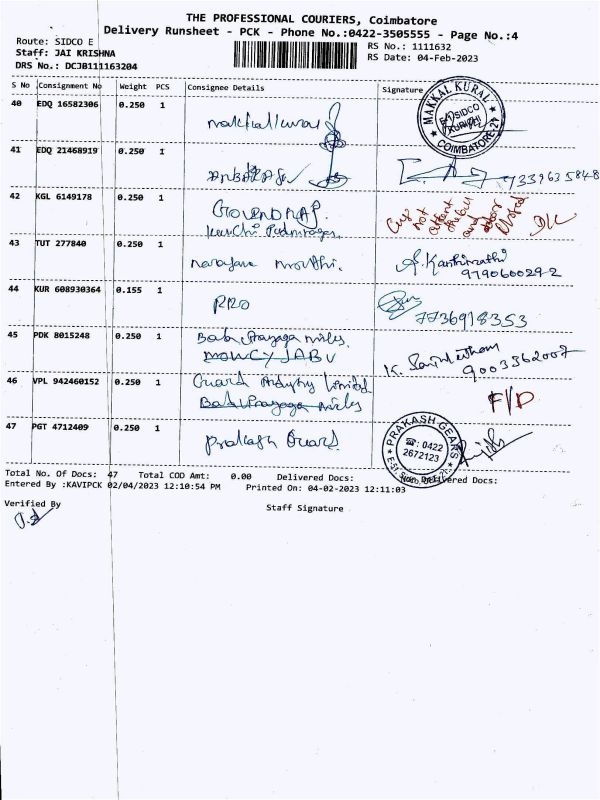 THE PROFESSIONAL COURIERS, Coimbatore
Delivery Runsheet - PCK - Phone No.:0422-3505555 - Page No.:4
Route: SIDCO E
Staff: JAI KRISHNA
DRS No.: DCJB111163204
RS No.: 1111632
RS Date: 04-Feb-2023
S No Consignment No Weight PCS Consignee Details Signature
40 EDQ 16582306 0.250 1
MAKKAL KURAL
SIDCO
KURICHI
COIMBATORE-21
41 EDQ 21468919 0.250 1 7339635848
42 KGL 6149178 0.250 1 GOVENDRAJ
Kurichi
not
attent
the call
and
door
closed
D/L
43 TUT 277840 0.250 1 narayana moorthi. 9790600292
44 KUR 608930364 0.155 1 PRO 7736918353
45 PDK 8015248 0.250 1 9003362007
46 VPL 942460152 0.250 1 Guard Industry Limited
F/D
47 PGT 4712409 0.250 1 Prakash Guard.
PRAKASH GEARS
☎: 0422
2672123
Total No. Of Docs: 47 Total COD Amt: 0.00 Delivered Docs:
Entered By :KAVIPCK 02/04/2023 12:10:54 PM Printed On: 04-02-2023 12:11:03
Verified By Staff Signature